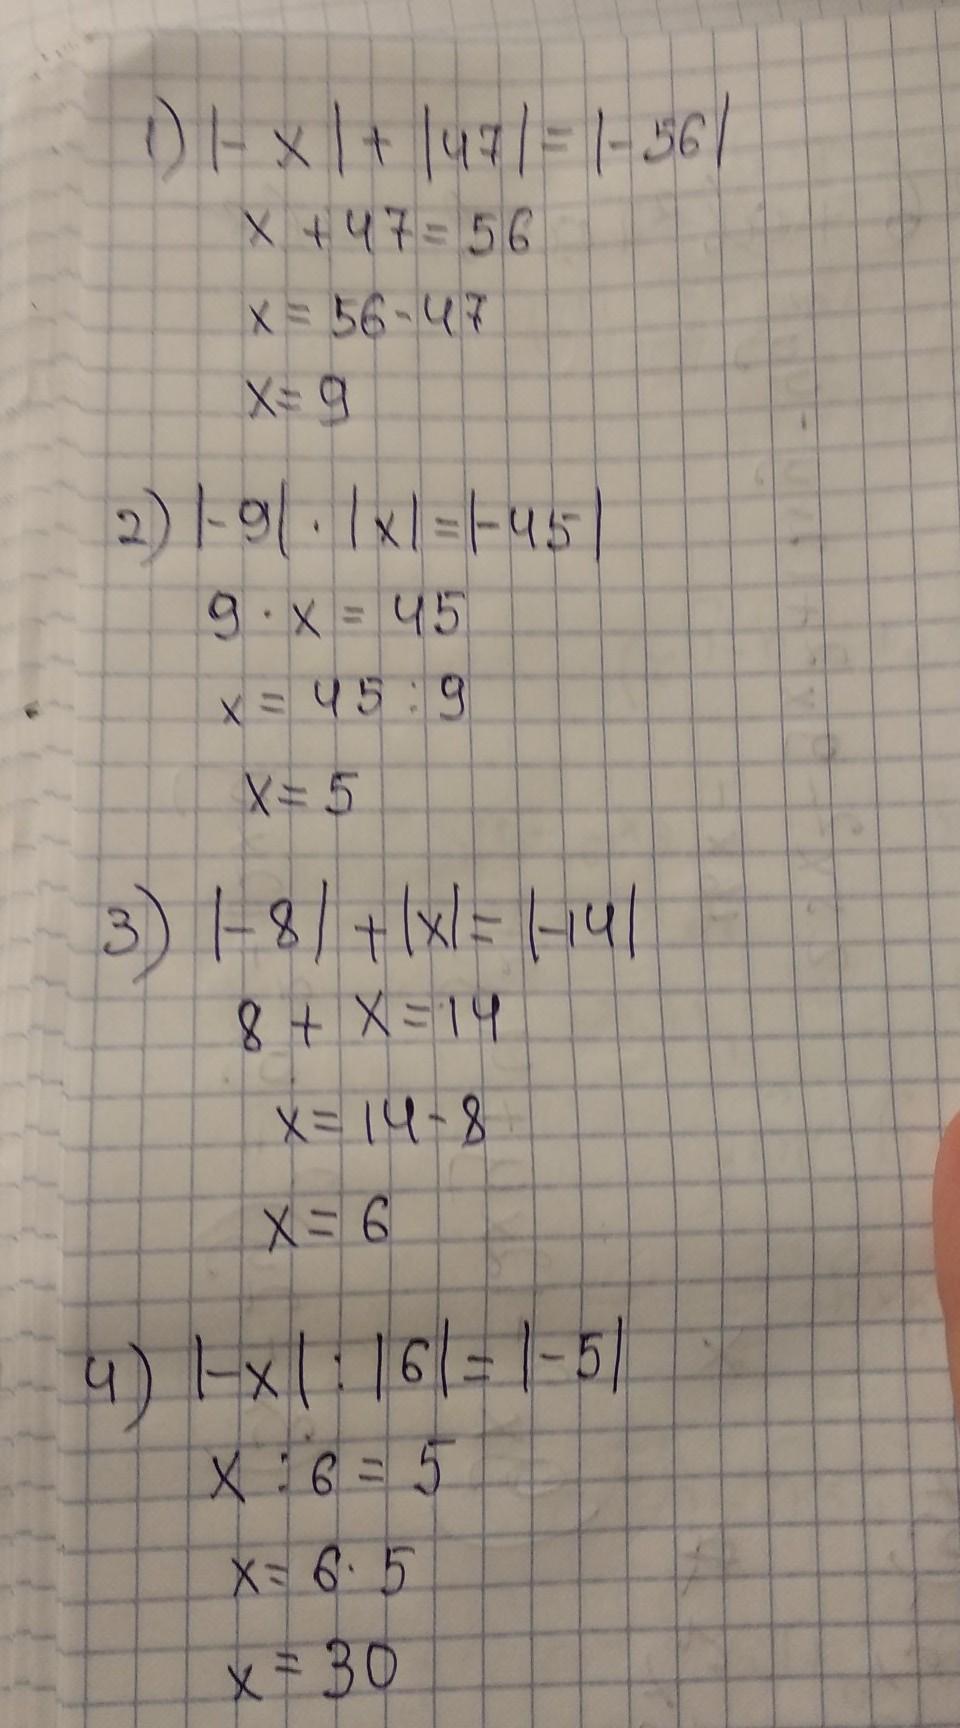 1) |-x| + |47| = |-56|
x + 47 = 56
x = 56 - 47
x = 9
2) |-9| · |x| = |-45|
9 · x = 45
x = 45 : 9
x = 5
3) |-8| + |x| = |-14|
8 + x = 14
x = 14 - 8
x = 6
4) |-x| : |6| = |-5|
x : 6 = 5
x = 6 · 5
x = 30